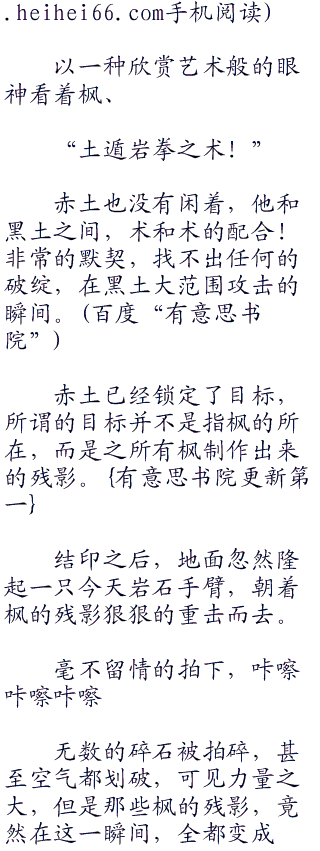 .heihei66.com手机阅读)
以一种欣赏艺术般的眼
神看着枫、
“土遁岩拳之术！”
赤土也没有闲着，他和
黑土之间，术和术的配合！
非常的默契，找不出任何的
破绽，在黑土大范围攻击的
瞬间。(百度“有意思书
院”)
赤土已经锁定了目标，
所谓的目标并不是指枫的所
在，而是之所有枫制作出来
的残影。{有意思书院更新第
一}
结印之后，地面忽然隆
起一只今天岩石手臂，朝着
枫的残影狠狠的重击而去。
毫不留情的拍下，咔嚓
咔嚓咔嚓
无数的碎石被拍碎，甚
至空气都划破，可见力量之
大，但是那些枫的残影，竟
然在这一瞬间，全都变成